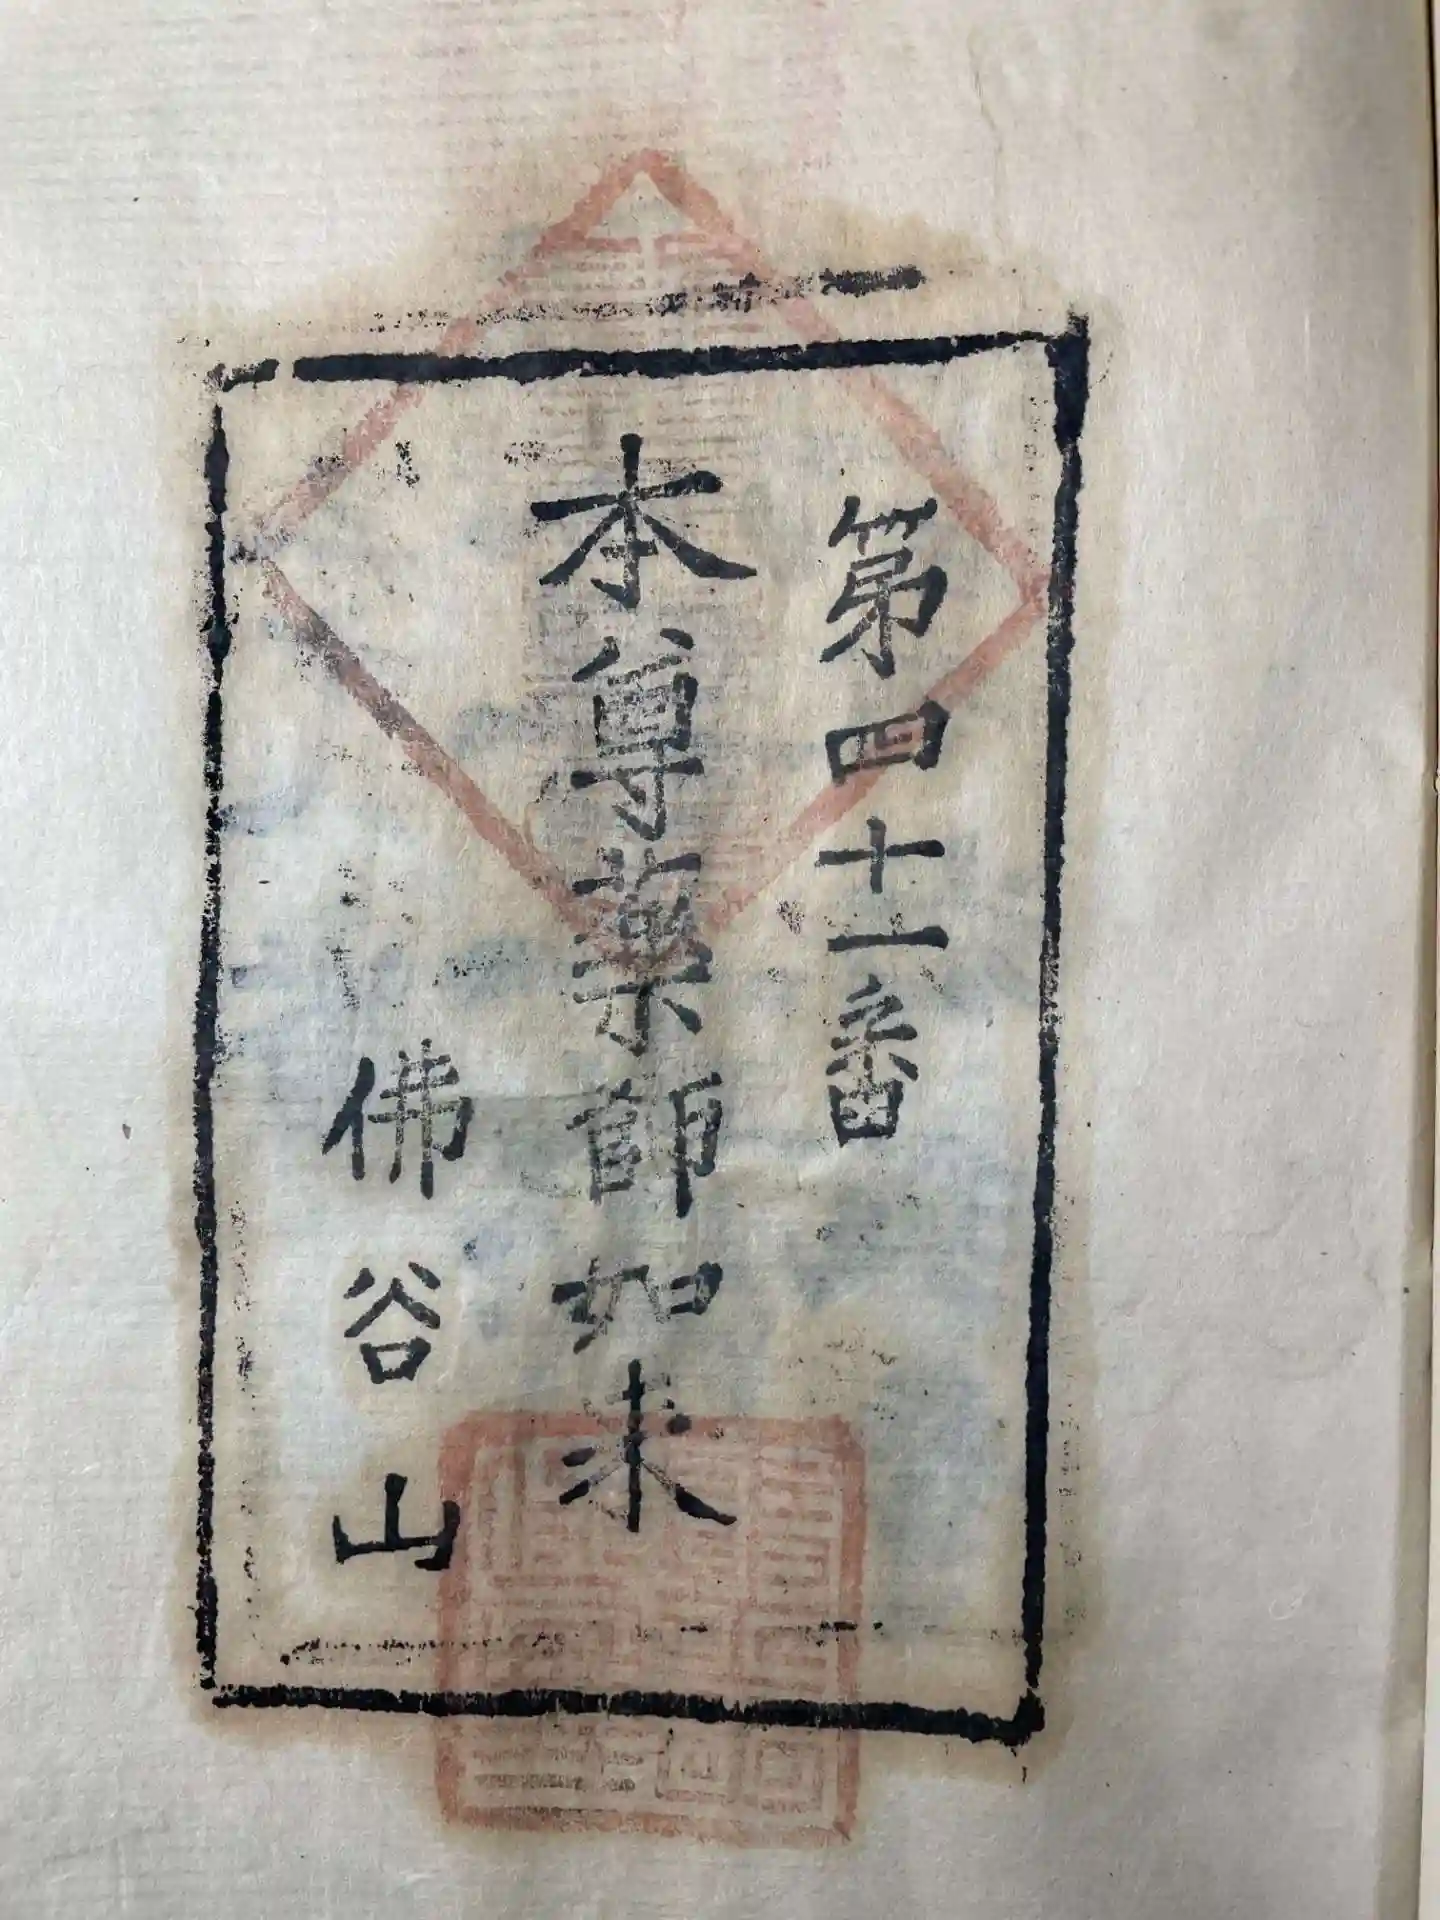 第四十一番
本尊藥師如来
佛谷山